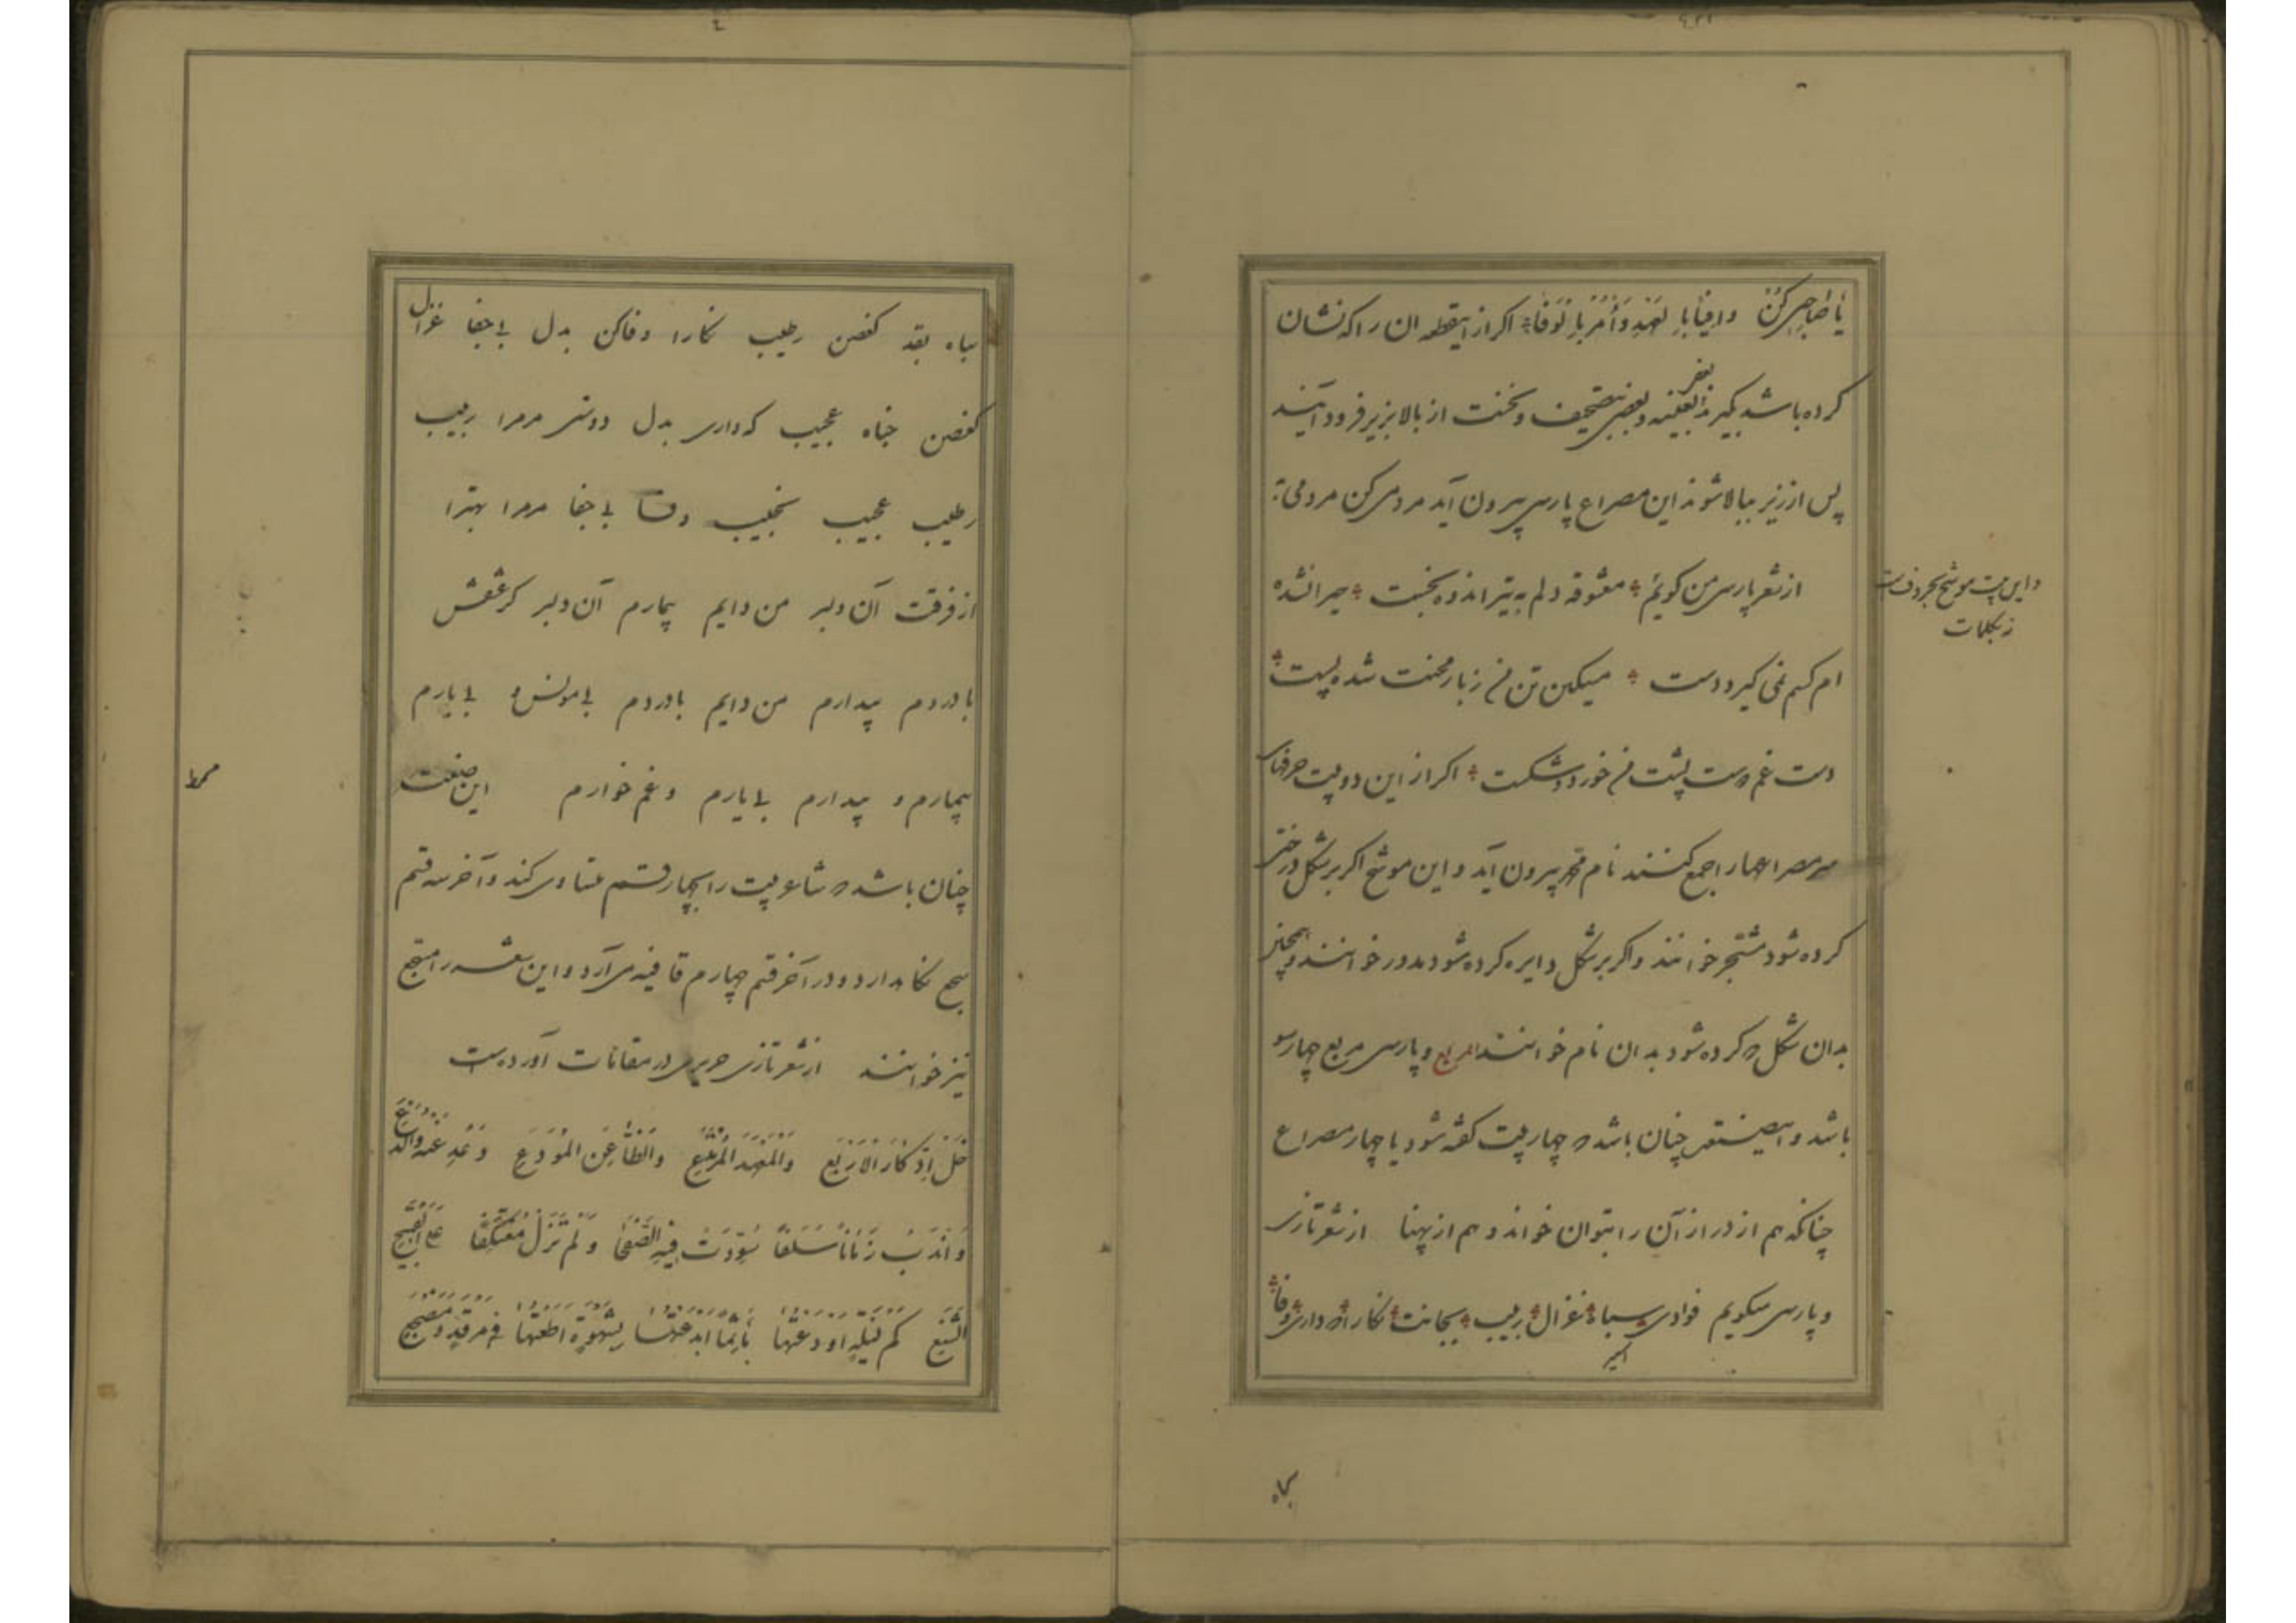 یَا صَاحِبِی کُنْ وافِیًا بِالعَهْدِ وَأْمُرْ بِالوَفَا اکر از اینقطعه ان را که نشان
کرده باشد بکیرند بعضی بعینه و بعضی بتصحیف و نخست از بالا بزیر فرود آیند
پس از زیر ببالا شوند این مصراع پارسی بیرون آید مردمی کن مردمی
از شعر پارسی من کویم معشوقه دلم به تیر اندوه بخست حیران شده
ام کسم نمی کیرد دست مسکین تن من ز بار محنت شد پست
دست غم دوست پشت من خورد شکست اکر از این دو بیت حرفهای
سر مصراعها را جمع کنند نام محمد بیرون آید و این موشح اکر بر شکل درختی
کرده شود مشجر خوانند و اکر بر شکل دایره کرده شود مدور خوانند و همچنین
بدان شکل که کرده شود بدان نام خوانند المربع و پارسی مربع چهارسو
باشد و این صنعت چنان باشد که چهار بیت کفته شود یا چهار مصراع
چنانکه هم از دراز آن را بتوان خواند و هم از پهنا از شعر تازی
و پارسی میکویم فوادی سباه غزال ربیب بجانت نکارا که داری وفا
کماه
و این بیت موشح بحروفست
نه بکلمات
سباه بقد کغصن رطیب نکارا وفا کن بدل بی جفا غزال
کغصن جناه عجیب که داری بدل دوستی مرمرا ربیب
رطیب عجیب نجیب وفا بی جفا مرمرا بهترا
از فرقت آن دلبر من دایم بیمارم آن دلبر کز عشقش
با دردم بیدارم من دایم با دردم بی مونس و بی یارم
بیمارم و بیدارم بی یارم و غم خوارم این صنعت
چنان باشد که شاعر بیت را بچهار قسم متساوی کند و آخر سه قسم
سجع نکاه دارد و در آخر قسم چهارم قافیه می آرد و این شعر را مسجع
نیز خوانند از شعر تازی حریری در مقامات آورده است
خَلِّ ادِّکَارَ الاَرْبُعِ وَالْمَعْهَدِ المُرْتَبَعِ وَالظَّاعِنِ المُوَدِّعِ وَعَدِّ عَنْهُ وَدَعِ
وَانْدُبْ زَمَانًا سَلَفَا سَوَّدْتَ فِیهِ الصُّحُفَا وَلَمْ تَزَلْ مُعْتَکِفًا عَلَی القَبِیحِ
الشَّنِعِ کَمْ لَیْلَةٍ اَوْدَعْتَهَا مَآثِمًا اَبْدَعْتَهَا لِشَهْوَةٍ اَطَعْتَهَا فِی مَرْقَدٍ وَمَضْجَعِ
مسمط